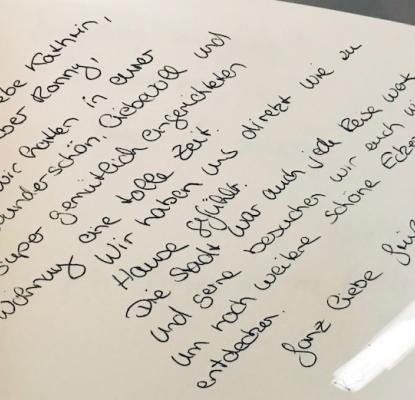 ebe Kathrin,
ber Ronny,
Wir hatten in eurer
wunderschön, liebevoll und
super gemütlich eingerichteten
Wohnung eine tolle Zeit.
Wir haben uns direkt wie zu
Hause gefühlt.
Die Stadt war auch jede Reise wert
und gerne besuchen wir euch wi
um noch weitere schöne Ecken
entdecken.
Ganz liebe Grü